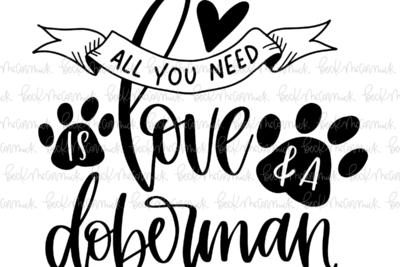 ALL YOU NEED
IS
love
& A
doberman